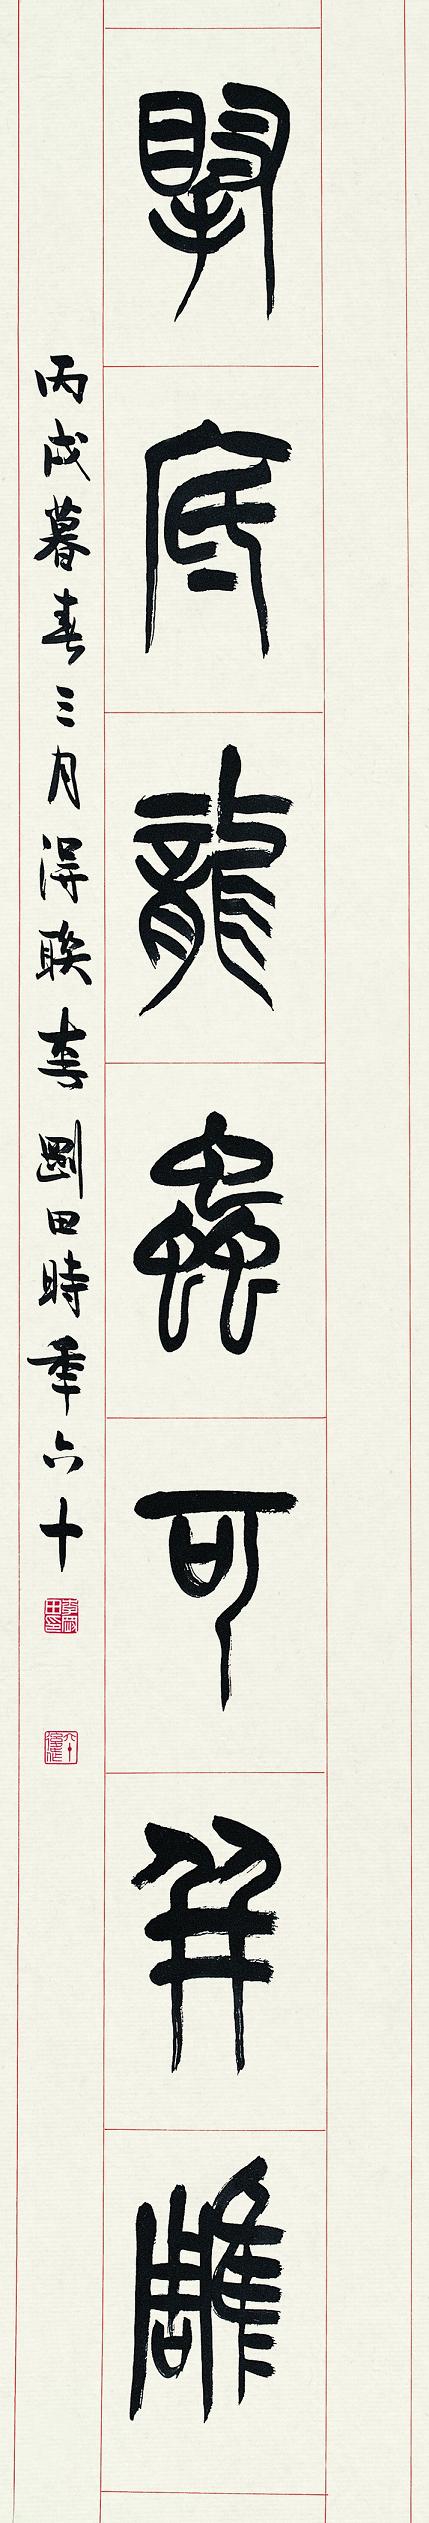 掔底龍蟲可并雕
丙戌暮春三月得聯李剛田時年六十